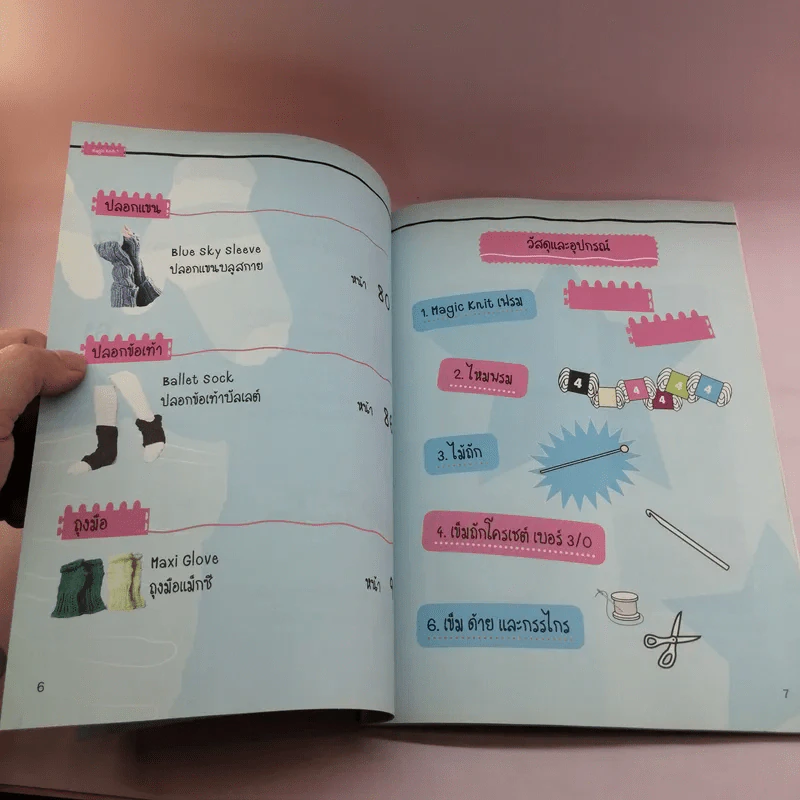 Magic Knit
ปลอกแขน
Blue Sky Sleeve
ปลอกแขนบลูสกาย
หน้า 80
ปลอกข้อเท้า
Ballet Sock
ปลอกข้อเท้าบัลเลต์
หน้า
ถุงมือ
Maxi Glove
ถุงมือแม็กซี่
หน้า
6
วัสดุและอุปกรณ์
1. Magic Knit เฟรม
2. ไหมพรม
4 4 4 4 4
3. ไม้ถัก
4. เข็มถักโครเชต์ เบอร์ 3/0
6. เข็ม ด้าย และกรรไกร
7